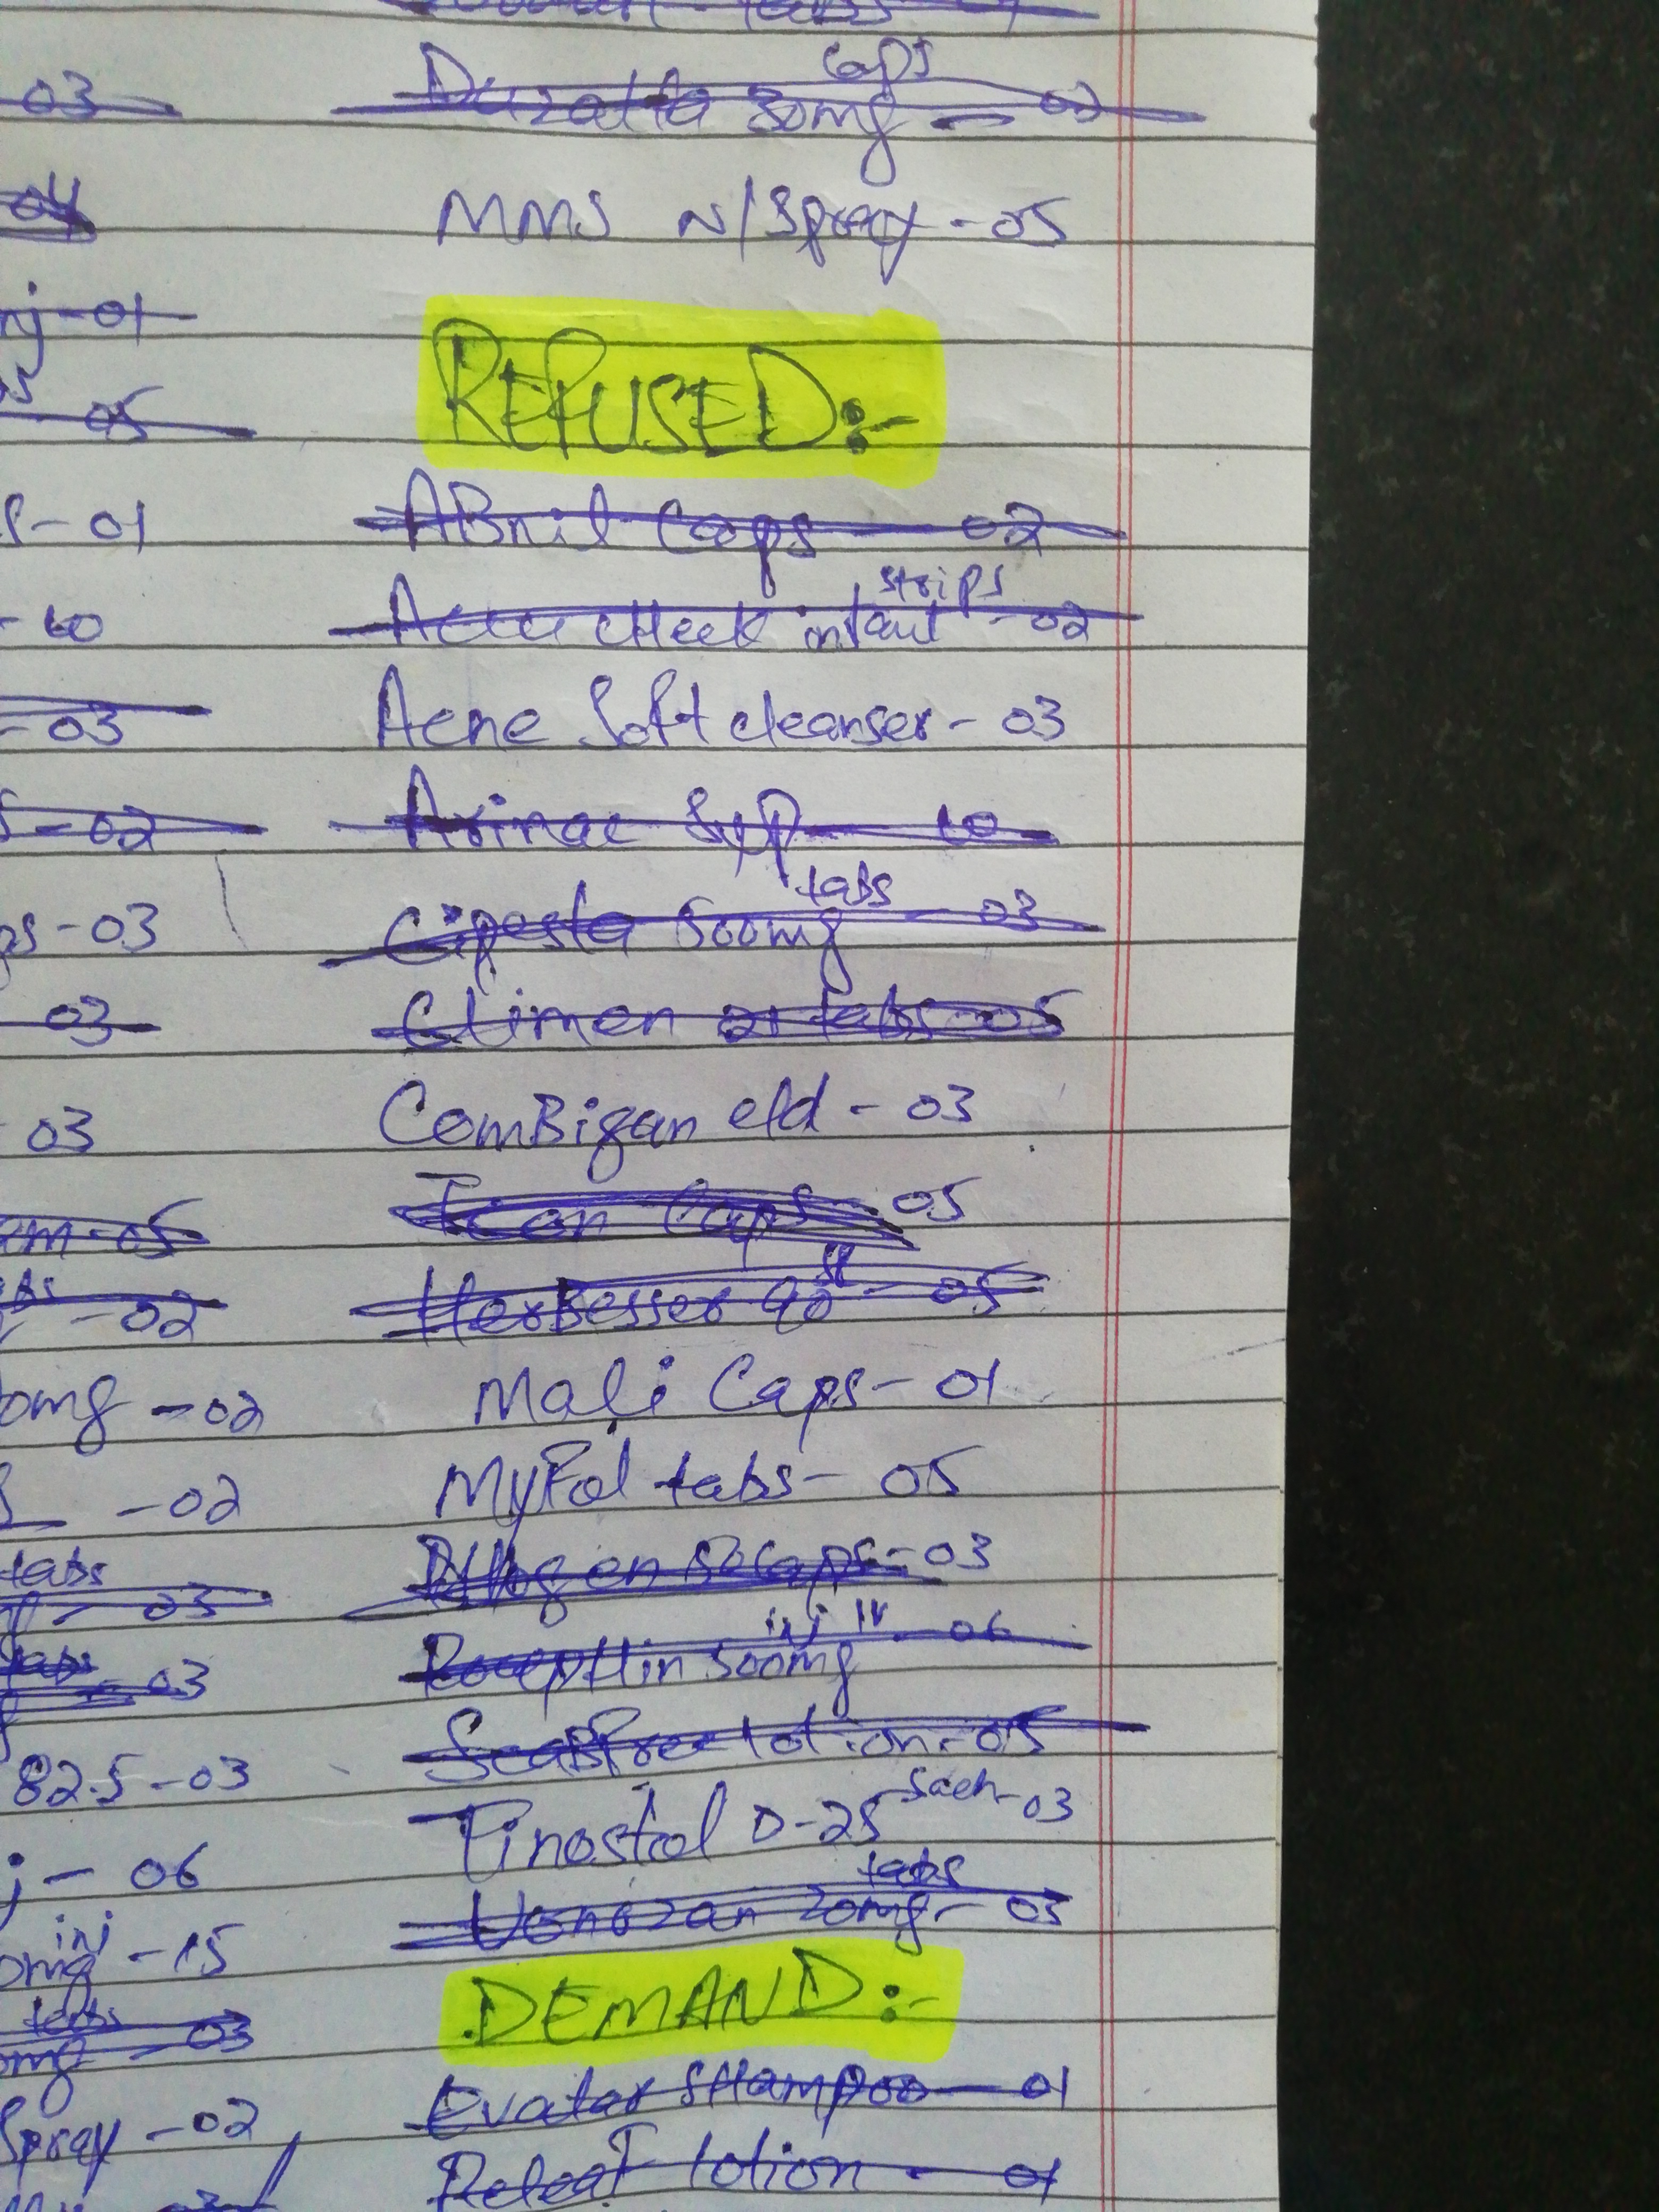 03
caps
30mg - 02
04
MMS N/Spray - 05
nj-01
REFUSED:-
05
ABnil Caps - 02
- 01
strips
Accu cHeck instant - 02
- 10
Acne Soft cleanser - 03
- 03
Arinac Syp - 10
- 02
tabs
Cipesta 500mg - 03
ps-03
Climen 21 tabs - 05
03
ComBigan eld - 03
03
Icon Caps - 05
em-05
HerBesser 90 SR - 05
- 02
Mali Caps - 01
omg - 02
MyFol tabs - 05
- 02
caps - 03
tabs
- 03
inj IV - 06
500mg
tabs
- 03
ScaBfree lotion - 05
82.5 - 03
Sach
Tinostal D-25 - 03
j - 06
tabs
Vonozan 20mg - 03
inj
omg - 15
DEMAND:-
tabs
omg - 03
Evatar SHampoo - 01
Spray - 02
lotion - 01
03